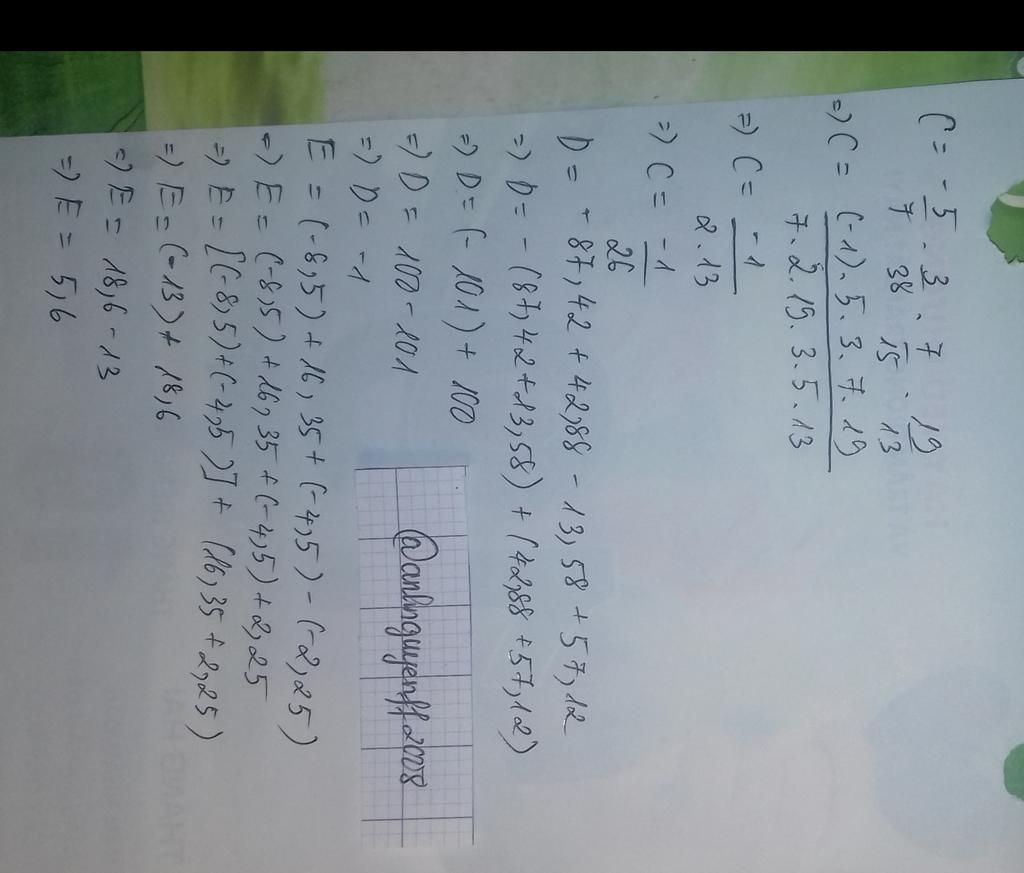 C = -5/7 . 3/38 . 7/15 . 19/13
=) C = (-1). 5. 3. 7. 19 / 7. 2. 19. 3. 5. 13
=) C = -1 / 2. 13
=) C = -1 / 26
D = - 87,42 + 42,88 - 13,58 + 57,12
=) D = - (87,42 + 13,58) + (42,88 + 57,12)
=) D = (- 101) + 100
=) D = 100 - 101
=) D = -1
E = (-8,5) + 16,35 + (-4,5) - (-2,25)
=) E = (-8,5) + 16,35 + (-4,5) + 2,25
=) E = [(-8,5) + (-4,5)] + (16,35 + 2,25)
=) E = (-13) + 18,6
=) E = 18,6 - 13
=) E = 5,6
@anhnguyenff2008